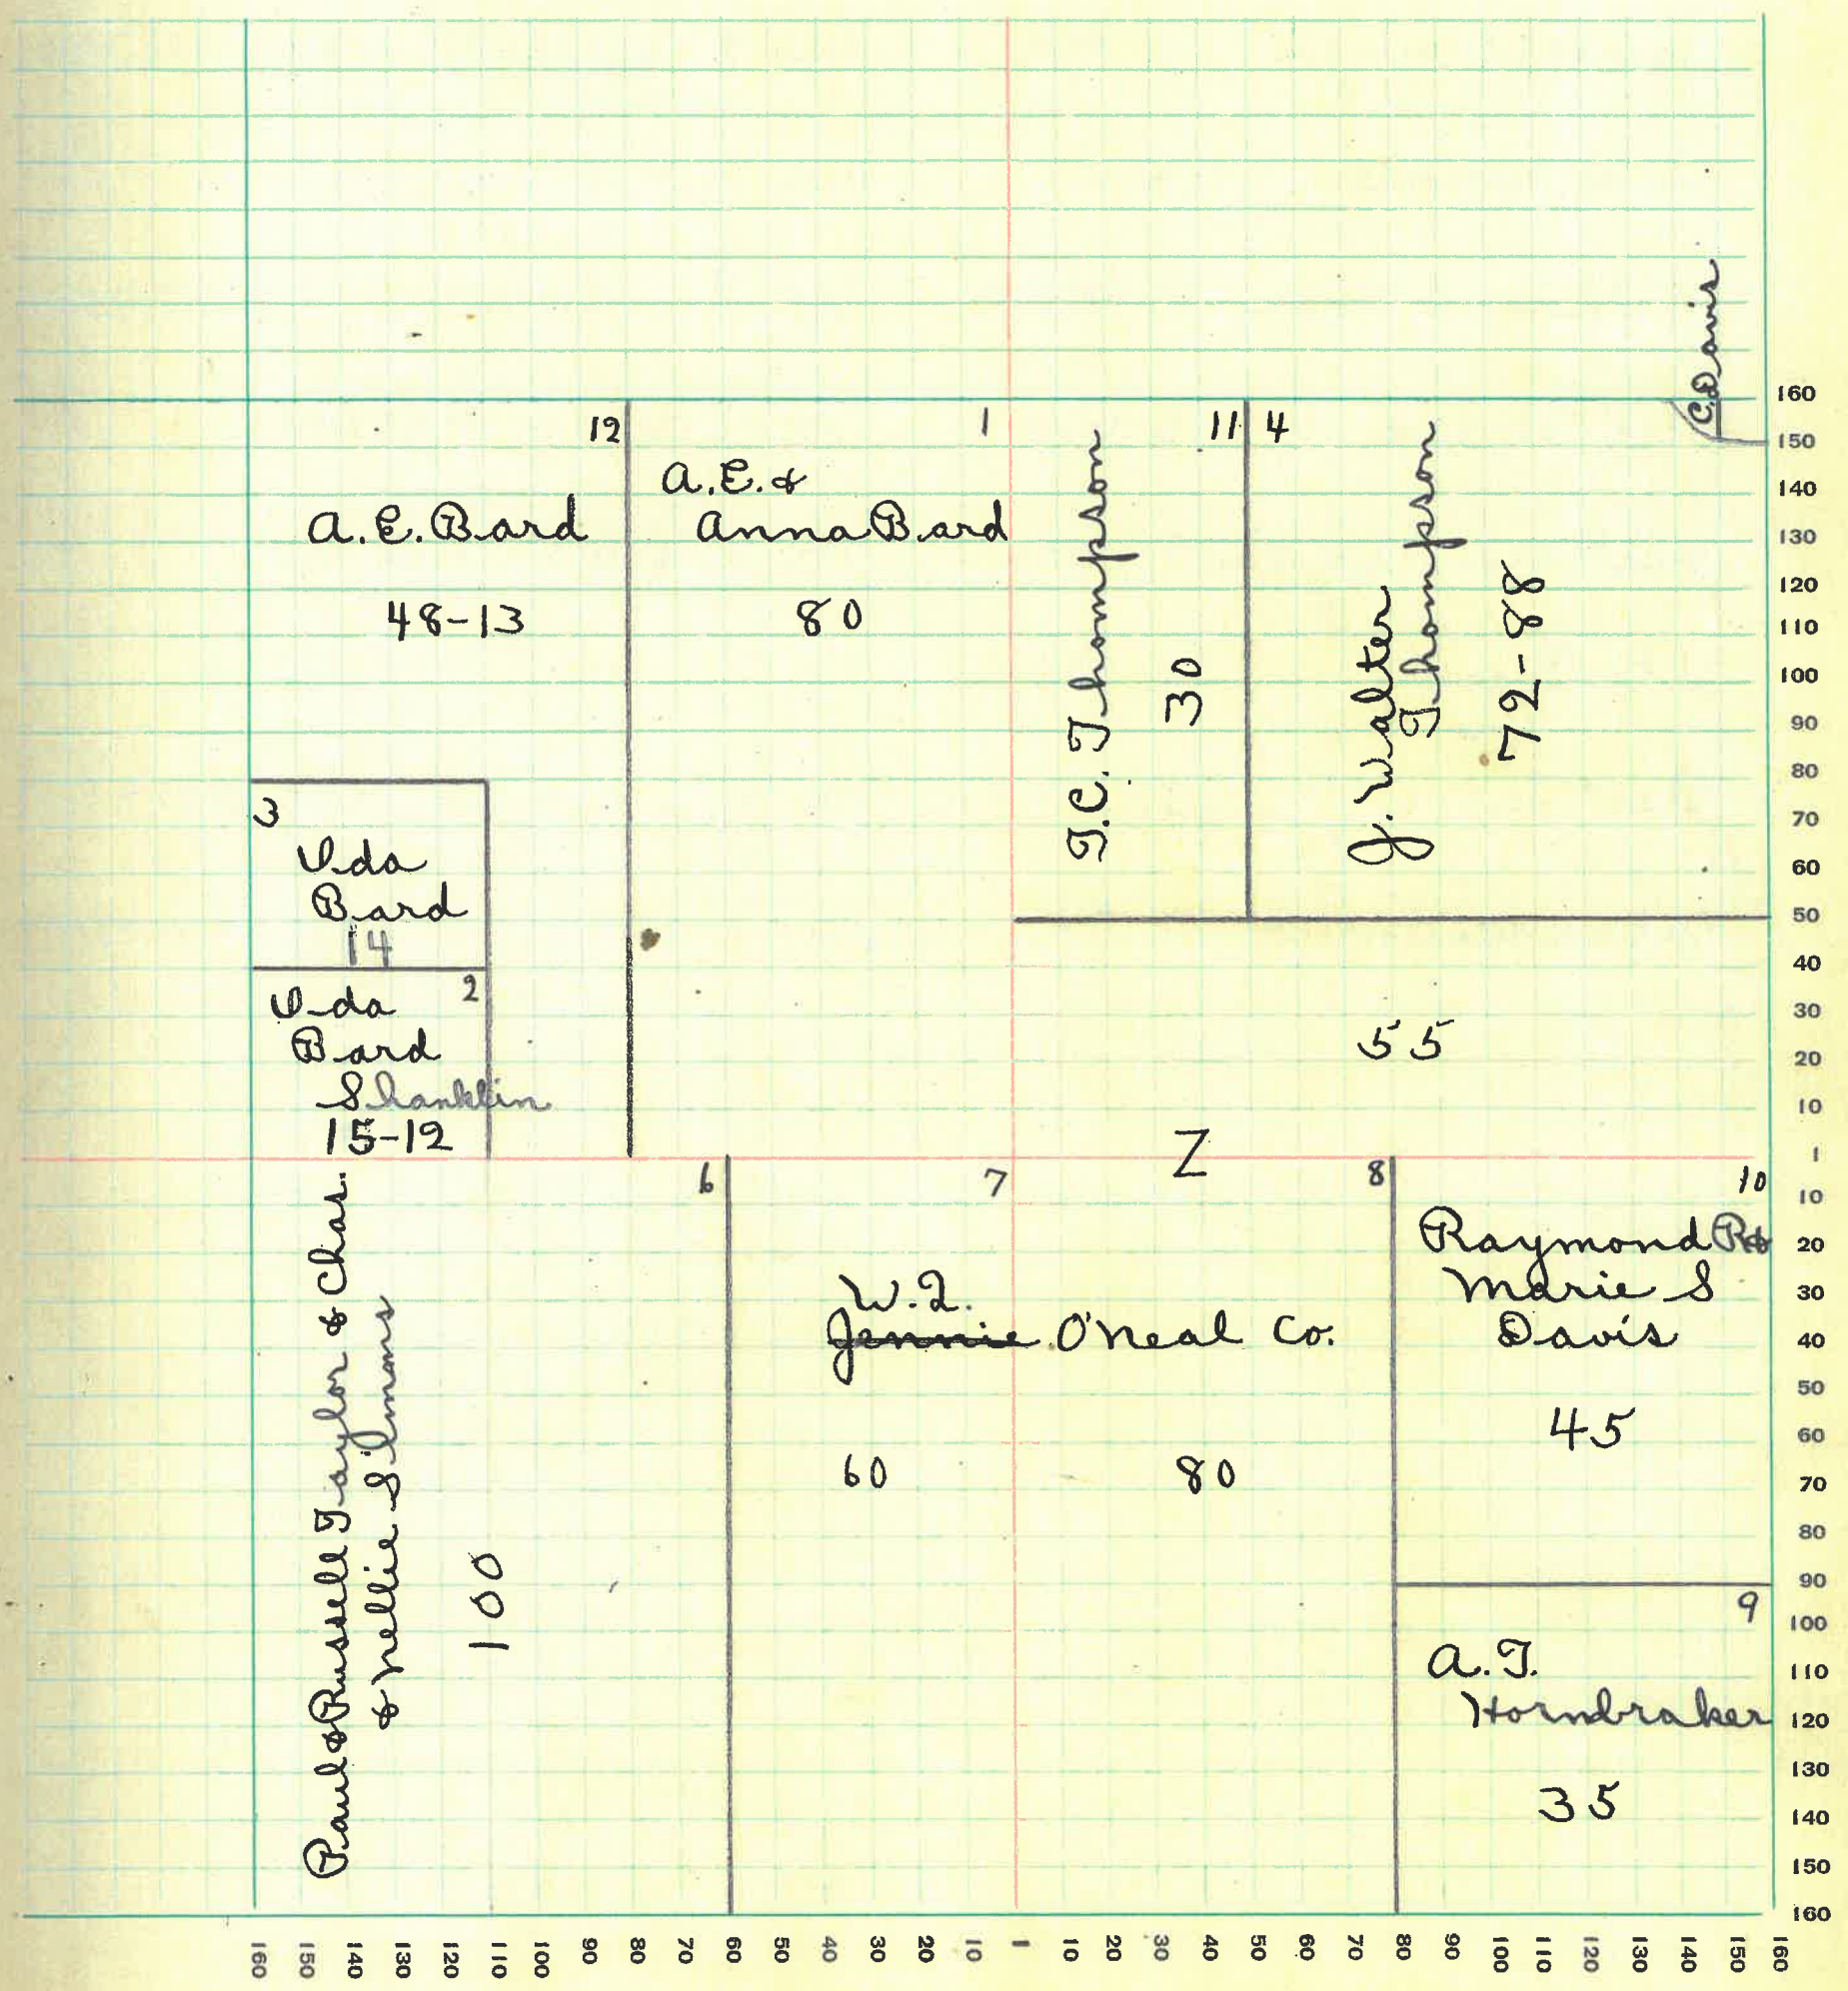 C. Davis
12
A.E. Bard
48-13
1
A.E. &
Anna Bard
80
11
T.C. Thompson
30
4
J. Walter
Thompson
72-88
3
Ida
Bard
14
2
Ida
Bard
Shanklin
15-12
55
Z
6
Paul & Russell Taylor & Chas.
& Nellie Simons
100
7
8
W.I.
Jennie O'Neal Co.
60
80
10
Raymond R &
Marie S
Davis
45
9
A.T.
Hornbraker
35
160
150
140
130
120
110
100
90
80
70
60
50
40
30
20
10
1
10
20
30
40
50
60
70
80
90
100
110
120
130
140
150
160
160 150 140 130 120 110 100 90 80 70 60 50 40 30 20 10 1 10 20 30 40 50 60 70 80 90 100 110 120 130 140 150 160